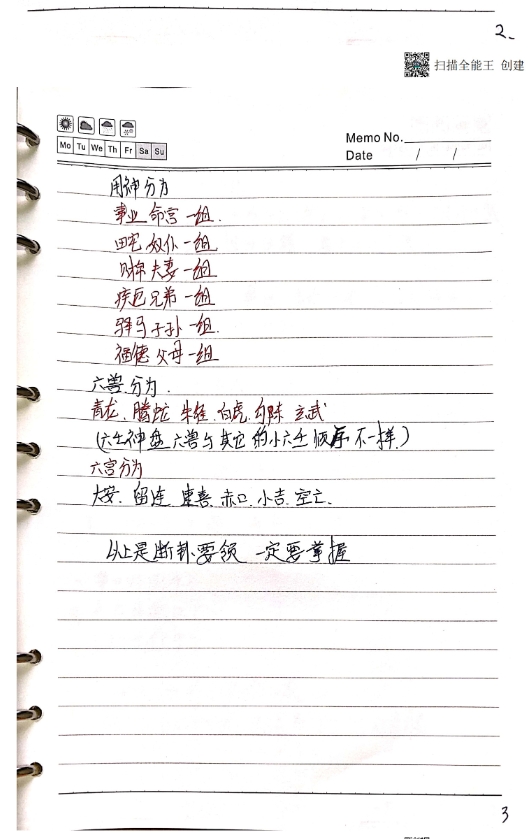 2.
扫描全能王 创建
Memo No.
Mo Tu We Th Fr Sa Su
Date / /
用神分为
事业 命宫 一组.
田宅 奴仆 一组
财帛 夫妻 一组
疾厄 兄弟 一组
驿马 子孙 一组.
福德 父母 一组
六兽分为.
青龙. 腾蛇 朱雀. 白虎. 勾陈 玄武
(六壬神盘六兽与其它的小六壬顺序不一样.)
六宫分为
大安. 留连. 速喜. 赤口. 小吉. 空亡.
以上是断卦要领 一定要掌握
3